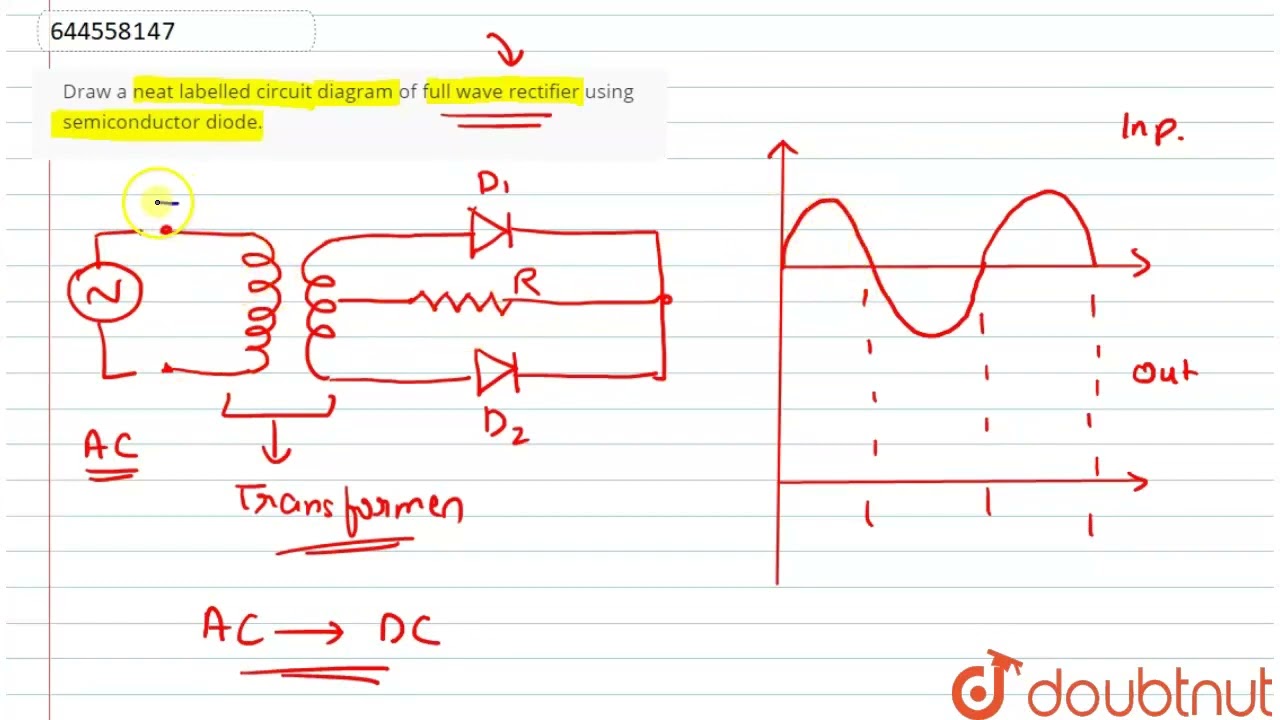 644558147
Draw a neat labelled circuit diagram of full wave rectifier using
semiconductor diode.
Inp.
D1
R
Out
D2
AC
Transformen
AC → DC
doubtnut